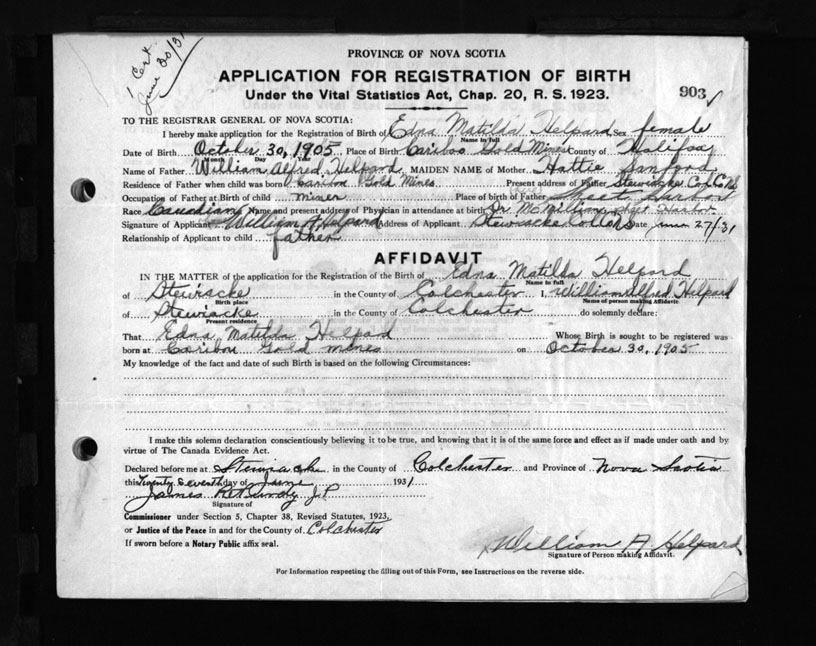 1 Cert.
June 30/31
PROVINCE OF NOVA SCOTIA
APPLICATION FOR REGISTRATION OF BIRTH
Under the Vital Statistics Act, Chap. 20, R. S. 1923.
903
TO THE REGISTRAR GENERAL OF NOVA SCOTIA:
I hereby make application for the Registration of Birth of Edna Matilda Helpard Sex female
Name in full
Date of Birth October 30, 1905 Place of Birth Cariboo Gold Mines County of Halifax
Month Day Year
Name of Father William Alfred Helpard MAIDEN NAME of Mother Hattie Sanford
Residence of Father when child was born Caribou Gold Mines Present address of Father Stewiacke Col Co NS
Occupation of Father at Birth of child miner Place of birth of Father Sheet Harbor
Race Canadian Name and present address of Physician in attendance at birth Dr McMillian Sheet Harbor
Signature of Applicant William A Helpard Address of Applicant Stewiacke Col Co NS Date June 27/31
Relationship of Applicant to child father
AFFIDAVIT
IN THE MATTER of the application for the Registration of the Birth of Edna Matilda Helpard
Name in full
of Stewiacke in the County of Colchester I, William Alfred Helpard
Birth place Name of person making Affidavit.
of Stewiacke in the County of Colchester do solemnly declare:
Present residence
That Edna Matilda Helpard Whose Birth is sought to be registered was
born at Caribou Gold mines on October 30, 1905
My knowledge of the fact and date of such Birth is based on the following Circumstances:
I make this solemn declaration conscientiously believing it to be true, and knowing that it is of the same force and effect as if made under oath and by
virtue of The Canada Evidence Act.
Declared before me at Stewiacke in the County of Colchester and Province of Nova Scotia
this Twenty Seventh day of June 1931
James J P
Signature of
Commissioner under Section 5, Chapter 38, Revised Statutes, 1923,
or Justice of the Peace in and for the County of Colchester
If sworn before a Notary Public affix seal.
William A. Helpard
Signature of Person making Affidavit.
For Information respecting the filling out of this Form, see Instructions on the reverse side.